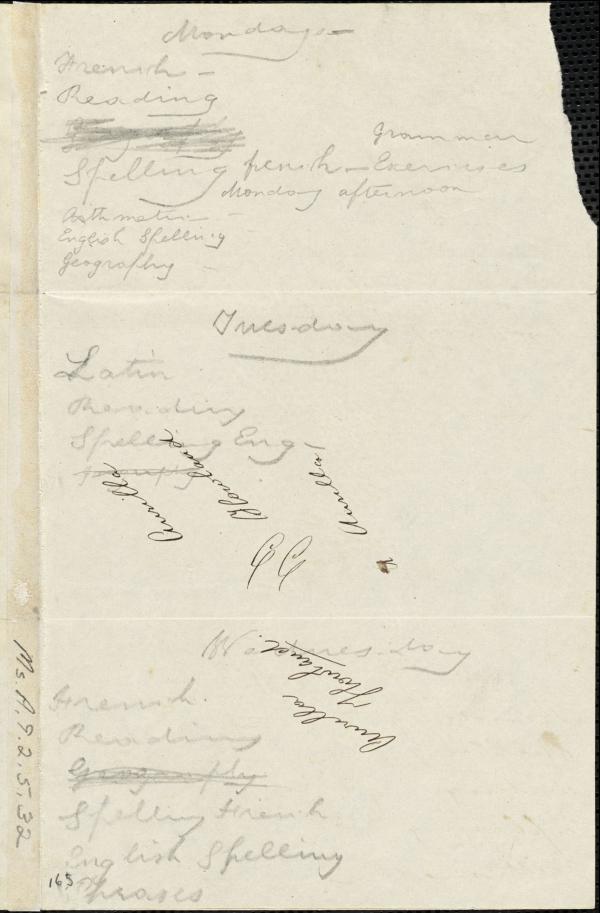 Monday
French
Reading
Grammar
Spelling french Exercises
Monday afternoon
Arithmatic
English Spelling
Geography
Tuesday
Latin
Reading
Spelling Eng
Howland
Wednesday
Howland
French.
Reading
Geography
Spelling French
English Spelling
Phrases
165
Ms.A.9.2.5.32